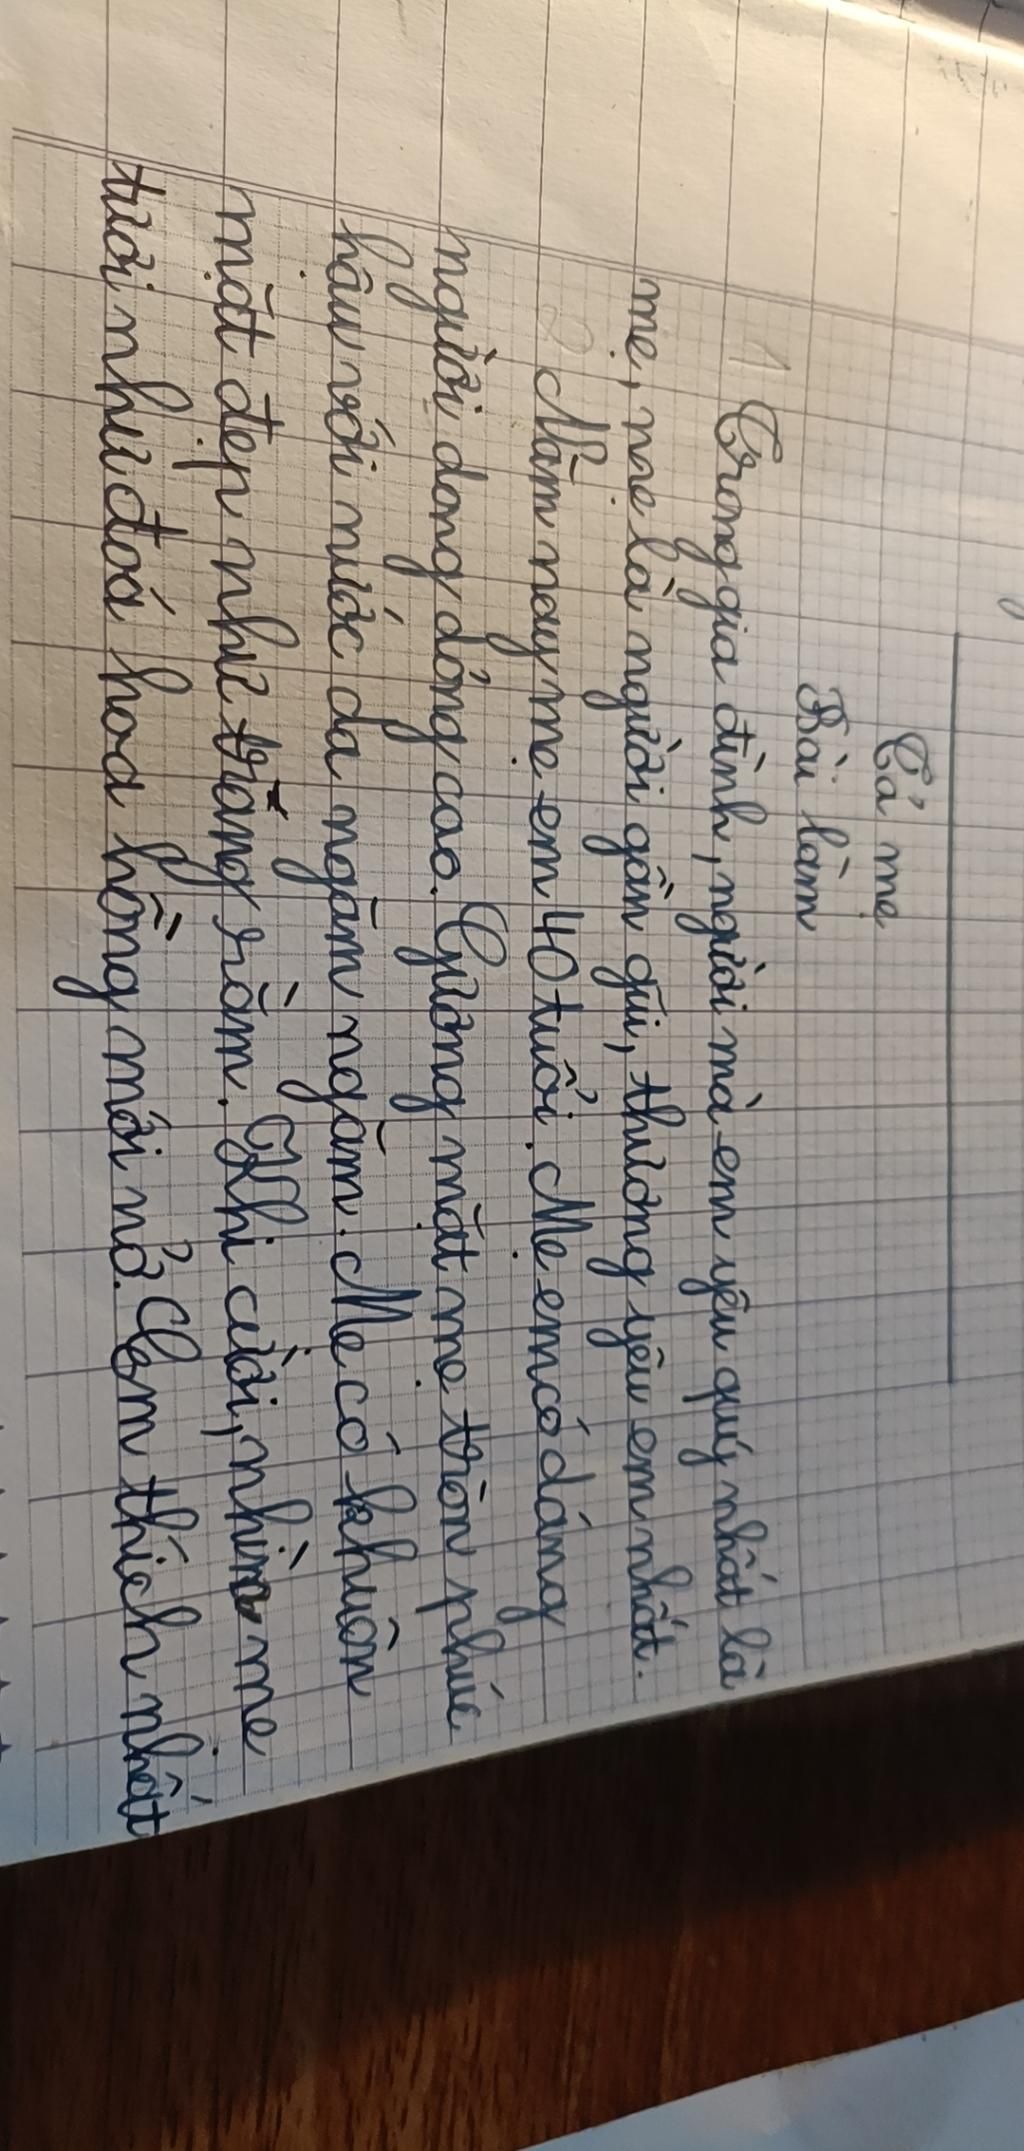 Tả mẹ
Bài làm
1 Trong gia đình, người mà em yêu quý nhất là
mẹ, mẹ là người gần gũi, thương yêu em nhất.
2 Năm nay mẹ em 40 tuổi. Mẹ em có dáng
người dong dỏng cao. Gương mặt mẹ tròn phúc
hậu với nước da ngăm ngăm. Mẹ có khuôn
mặt đẹp như trăng rằm. Khi cười, nhìn mẹ
tươi như đoá hoa hồng mới nở. Em thích nhất